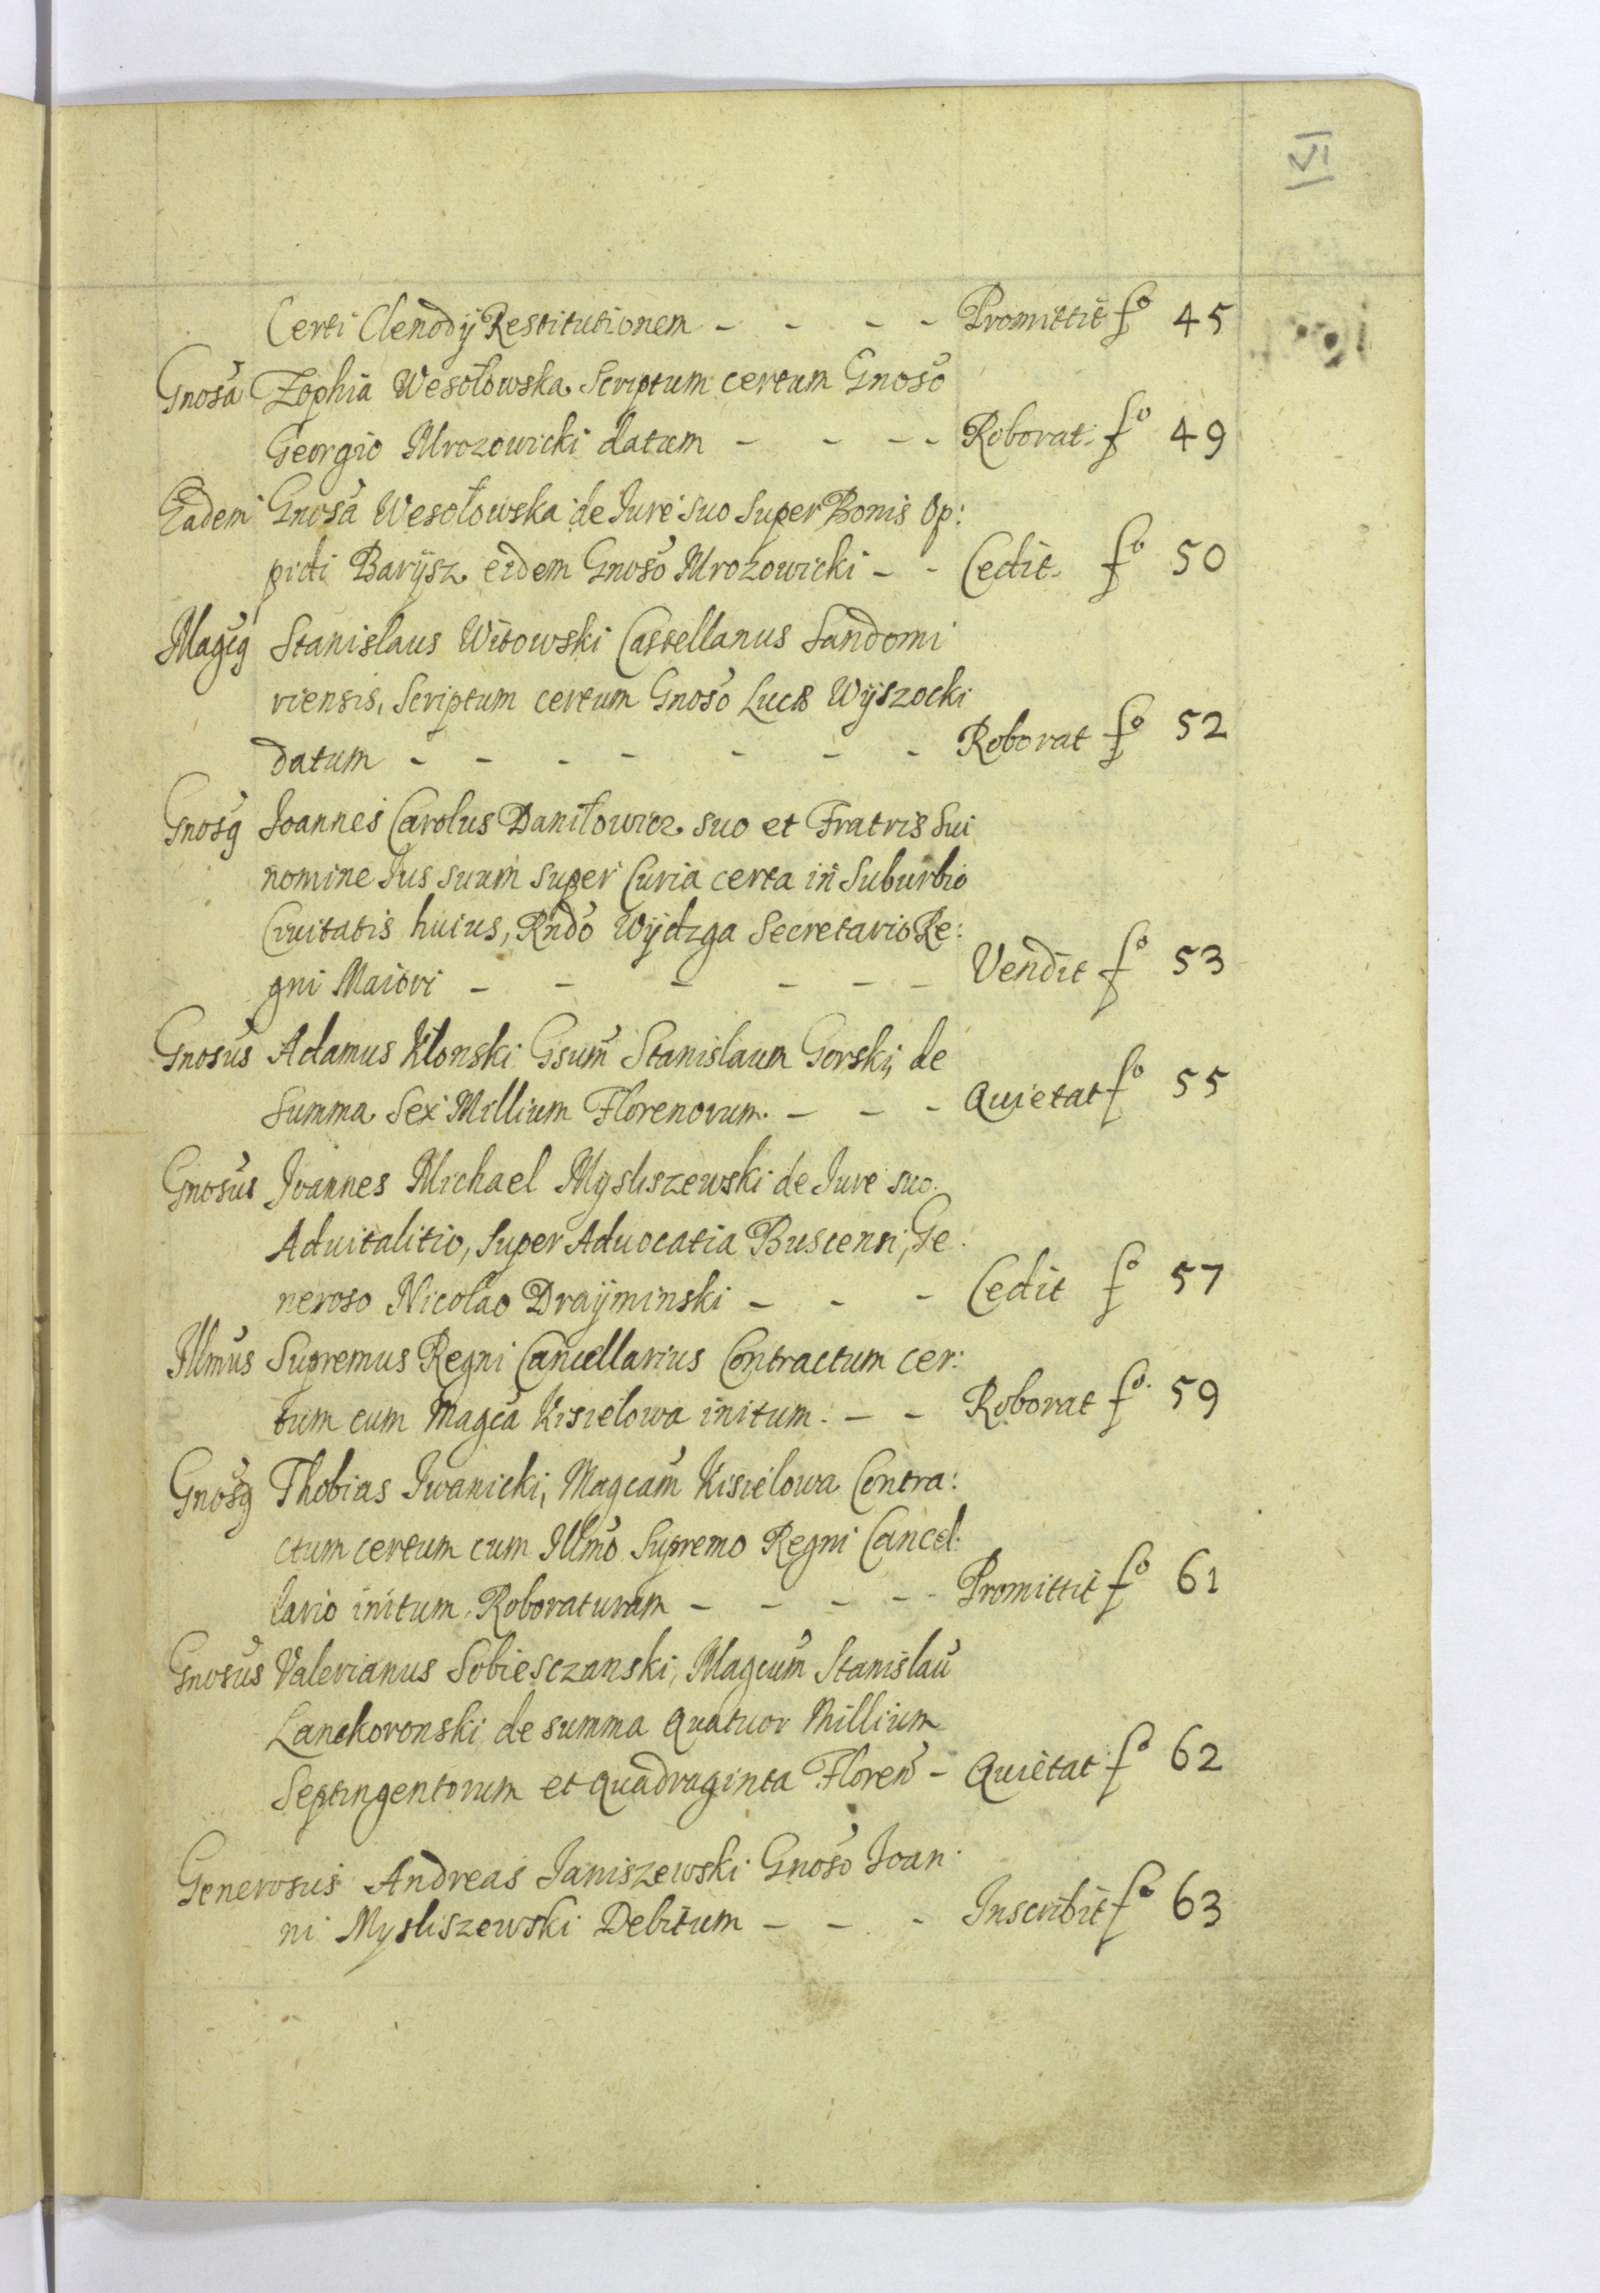 VI
Certi Clenodÿ Restitutionem - - - - Promittit fº 45
Gnosa Zophia Wesołowska Scriptum certum Gnoso
Georgio Mrozowicki datum - - - - Roborat. fº 49
Eadem Gnosa Wesołowska de Jure suo super Bonis Op:
pidi Barÿsz eidem Gnoso Mrozowicki - - Cedit fº 50
Magcq Stanislaus Witowski Castellanus Sandomi
riensis, Scriptum certum Gnoso Lucæ Wÿszocki
datum - - - - - - - Roborat fº 52
Gnosq Joannes Carolus Daniłowicz suo et Fratris sui
nomine Jus suum super Curia certa in Suburbio
Civitatis huius, Rndo Wÿdzga Secretario Re:
gni Maiori - - - - - - Vendit fº 53
Gnosus Adamus Kłonski Gsum Stanislaum Gorski, de
Summa Sex Millium Florenorum. - - - Quietat fº 55
Gnosus Joannes Michael Mysliszewski de Jure suo
Aduitalitio, super Aduocatia Buscensi, Ge
neroso Nicolao Draÿminski - - - Cedit fº 57
Illmus Supremus Regni Cancellarius Contractum cer:
tum cum Magca Kisielowa initum. - - Roborat fº. 59
Gnosq Thobias Iwanicki, Magcam Kisielowa Contra:
ctum certum cum Illmo Supremo Regni Cancel:
lario initum, Roboraturam - - - - Promittit fº 61
Gnosus Valerianus Sobiesczanski, Magcum Stanislau
Lanckoronski de summa Quatuor Millium
Septingentorum et Quadraginta Floren - Quietat fº 62
Generosus Andreas Janiszewski Gnoso Joan
ni Mysliszewski Debitum - - - Inscribit fº 63